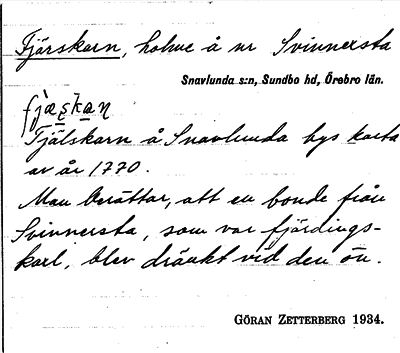 Fjärskarn, holme å nr Svinnersta
Snavlunda s:n, Sundbo hd, Örebro län.
fjæskaɳ
Fjälskarn å Snavlunda bys karta
av år 1770.
Man berättar, att en bonde från
Svinnersta, som var fjärdings-
karl, blev dränkt vid den ön.
GÖRAN ZETTERBERG 1934.